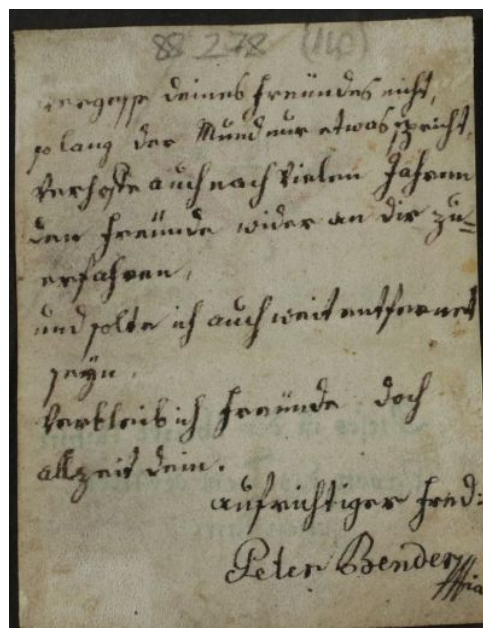 88 278 (140)
vergesse deines freündes nicht,
so lang der Mund nur etwas spricht,
Verhoffe auch nach Vielen Jahren
den freünde wider an dir zu=
erfahren,
und solte ich auch weit entfernet
seÿn,
Verbleib ich freünde doch
allzeit dein.
aufrichtiger fred:
Peter Bender